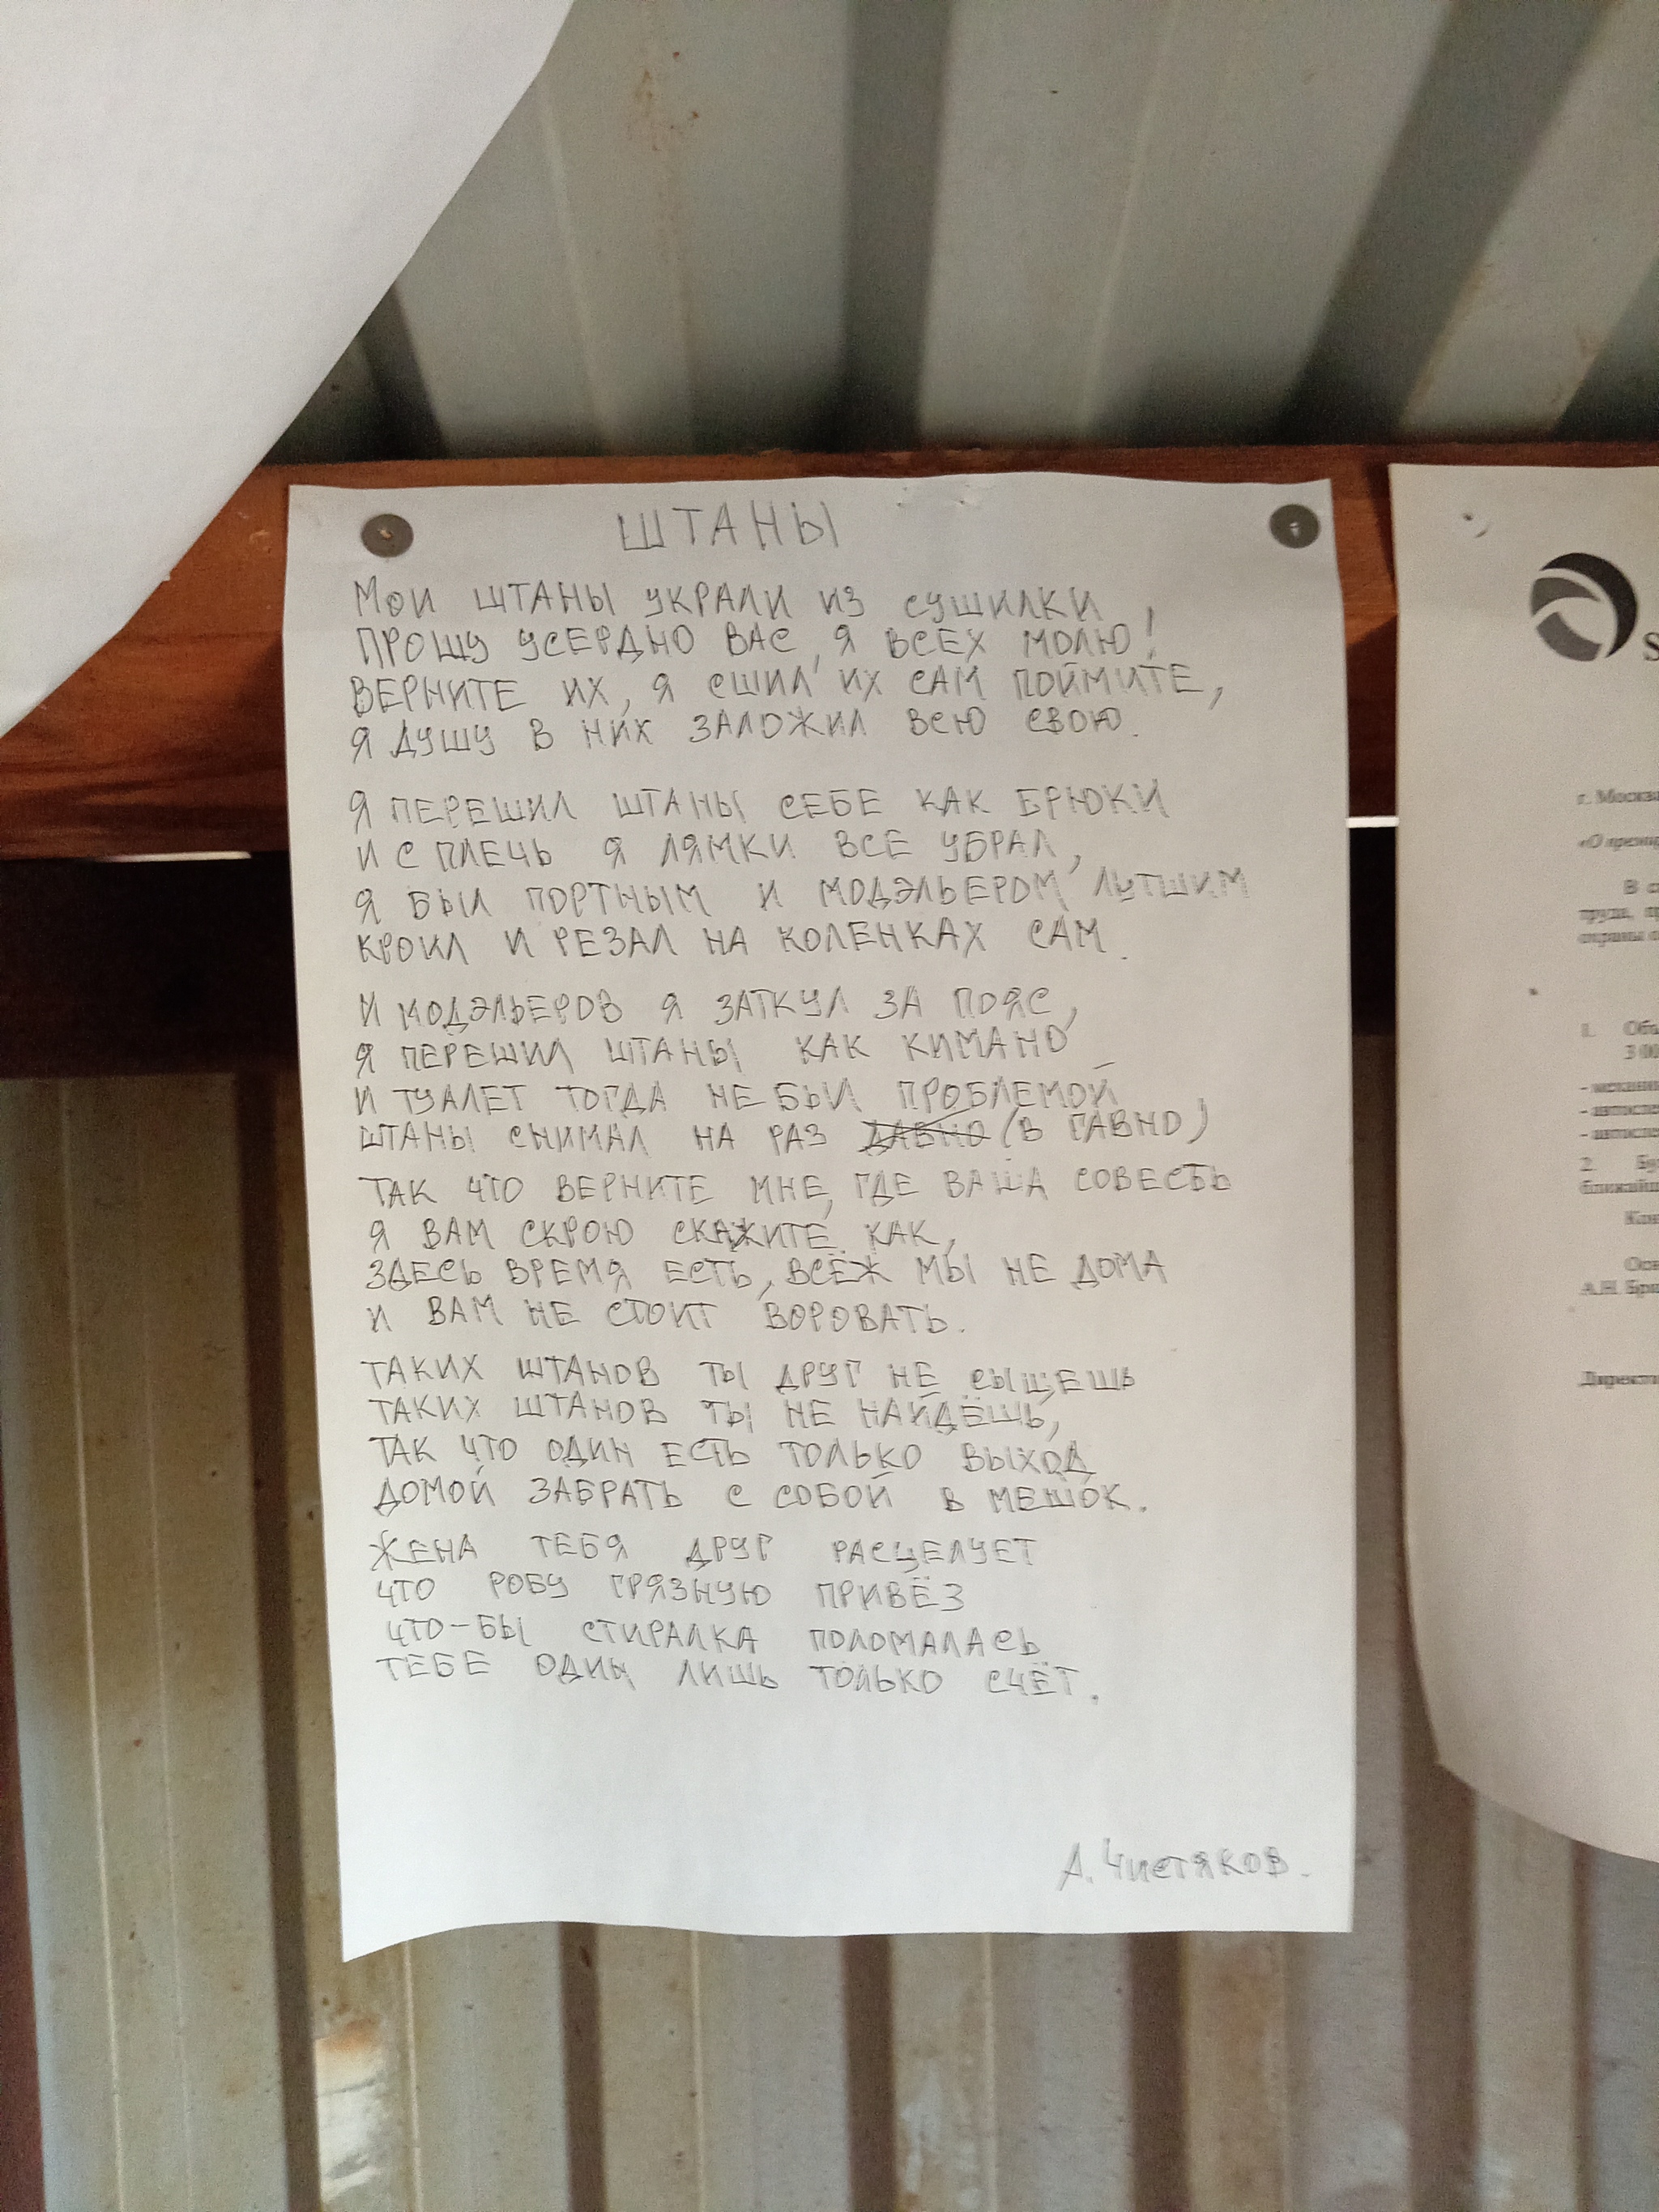 ШТАНЫ
МОИ ШТАНЫ УКРАЛИ ИЗ СУШИЛКИ,
ПРОШУ УСЕРДНО ВАС, Я ВСЕХ МОЛЮ!
ВЕРНИТЕ ИХ, Я СШИЛ ИХ САМ ПОЙМИТЕ,
Я ДУШУ В НИХ ЗАЛОЖИЛ ВСЮ СВОЮ.
Я ПЕРЕШИЛ ШТАНЫ СЕБЕ КАК БРЮКИ
И С ПЛЕЧЬ Я ЛЯМКИ ВСЕ УБРАЛ,
Я БЫЛ ПОРТНЫМ И МОДЭЛЬЕРОМ ЛУТШИМ
КРОИЛ И РЕЗАЛ НА КОЛЕНКАХ САМ.
И МОДЭЛЬЕРОВ Я ЗАТКУЛ ЗА ПОЯС,
Я ПЕРЕШИЛ ШТАНЫ КАК КИМАНО
И ТУАЛЕТ ТОГДА НЕ БЫЛ ПРОБЛЕМОЙ,
ШТАНЫ СНИМАЛ НА РАЗ ДАВНО (В ГАВНО)
ТАК ЧТО ВЕРНИТЕ МНЕ, ГДЕ ВАША СОВЕСТЬ
Я ВАМ СКРОЮ СКАЖИТЕ КАК,
ЗДЕСЬ ВРЕМЯ ЕСТЬ, ВСЁЖ МЫ НЕ ДОМА
И ВАМ НЕ СТОИТ ВОРОВАТЬ.
ТАКИХ ШТАНОВ ТЫ ДРУГ НЕ СЫЩЕШЬ
ТАКИХ ШТАНОВ ТЫ НЕ НАЙДЁШЬ,
ТАК ЧТО ОДИН ЕСТЬ ТОЛЬКО ВЫХОД
ДОМОЙ ЗАБРАТЬ С СОБОЙ В МЕШОК.
ЖЕНА ТЕБЯ ДРУГ РАСЦЕЛУЕТ
ЧТО РОБУ ГРЯЗНУЮ ПРИВЁЗ
ЧТО-БЫ СТИРАЛКА ПОЛОМАЛАСЬ
ТЕБЕ ОДИН ЛИШЬ ТОЛЬКО СЧЁТ.
А. Чистяков.
S
г. Москва
«О
В
труда,
охраны
1.
3 00
2.
А.Н.